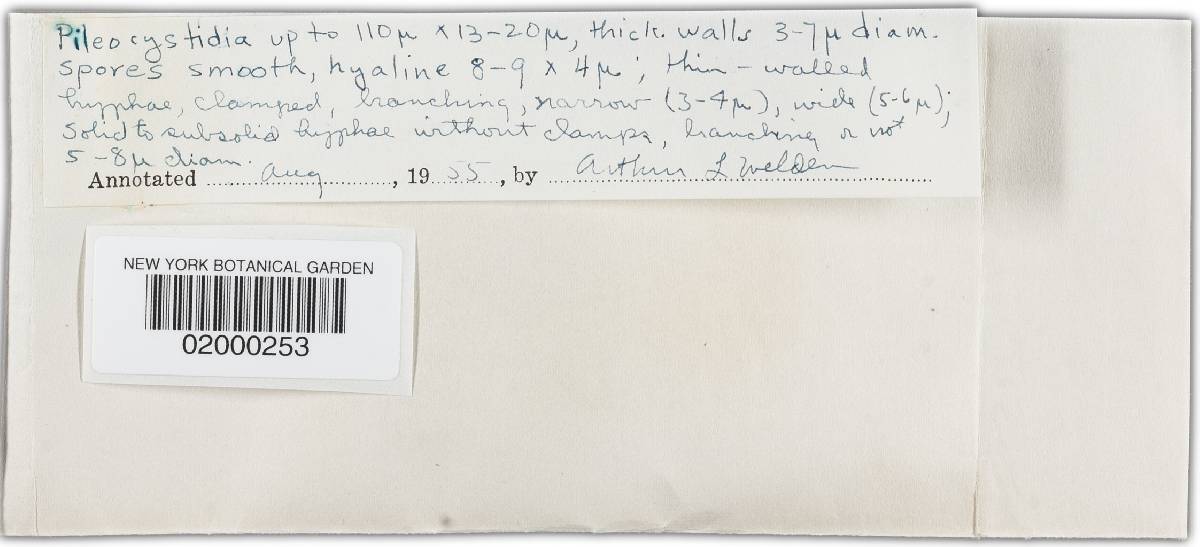 Pileocystidia up to 110µ × 13-20µ, thick walls 3-7µ diam.
spores smooth, hyaline 8-9 × 4µ; thin-walled
hyphae, clamped, branching, narrow (3-4µ), wide (5-6µ);
solid to subsolid hyphae without clamps, branching or not
5-8µ diam.
Annotated Aug, 1955, by Arthur L Welden
NEW YORK BOTANICAL GARDEN
02000253